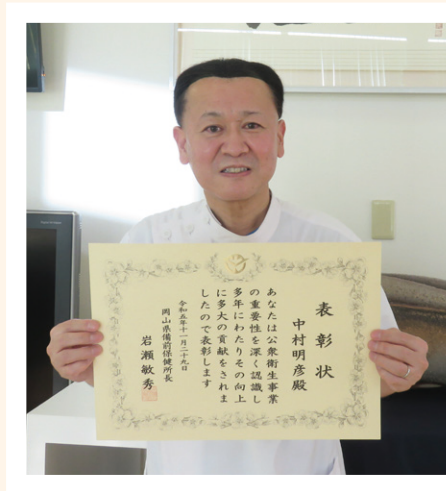 表彰状
中村明彦殿
あなたは公衆衛生事業
の重要性を深く認識し
多年にわたりその向上
に多大の貢献をされま
したので表彰します
令和五年十一月二十九日
岡山県備前保健所長
岩瀬敏秀